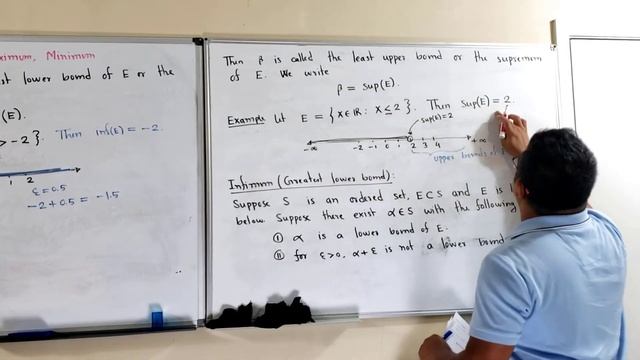 ximum, Minimum
st lower bound of E or the
(E).
> -2}. Then inf(E) = -2.
1 2
ε = 0.5
-2 + 0.5 = -1.5
Then β is called the least upper bound or the supremum
of E. We write
β = sup(E).
Example: Let E = {x∈ℝ: x ≤ 2}. Then sup(E) = 2.
sup(E)=2
-∞ -2 -1 0 1 2 3 4 +∞
upper bounds of
Infimum (Greatest lower bound):
Suppose S is an ordered set, E⊂S and E is
below. Suppose there exist α∈S with the following
(i) α is a lower bound of E:
(ii) for ε>0, α+ε is not a lower bound